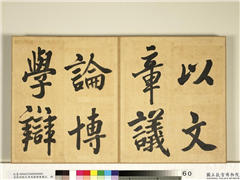 以文
章議
論博
學辯
60
國立故宮博物院